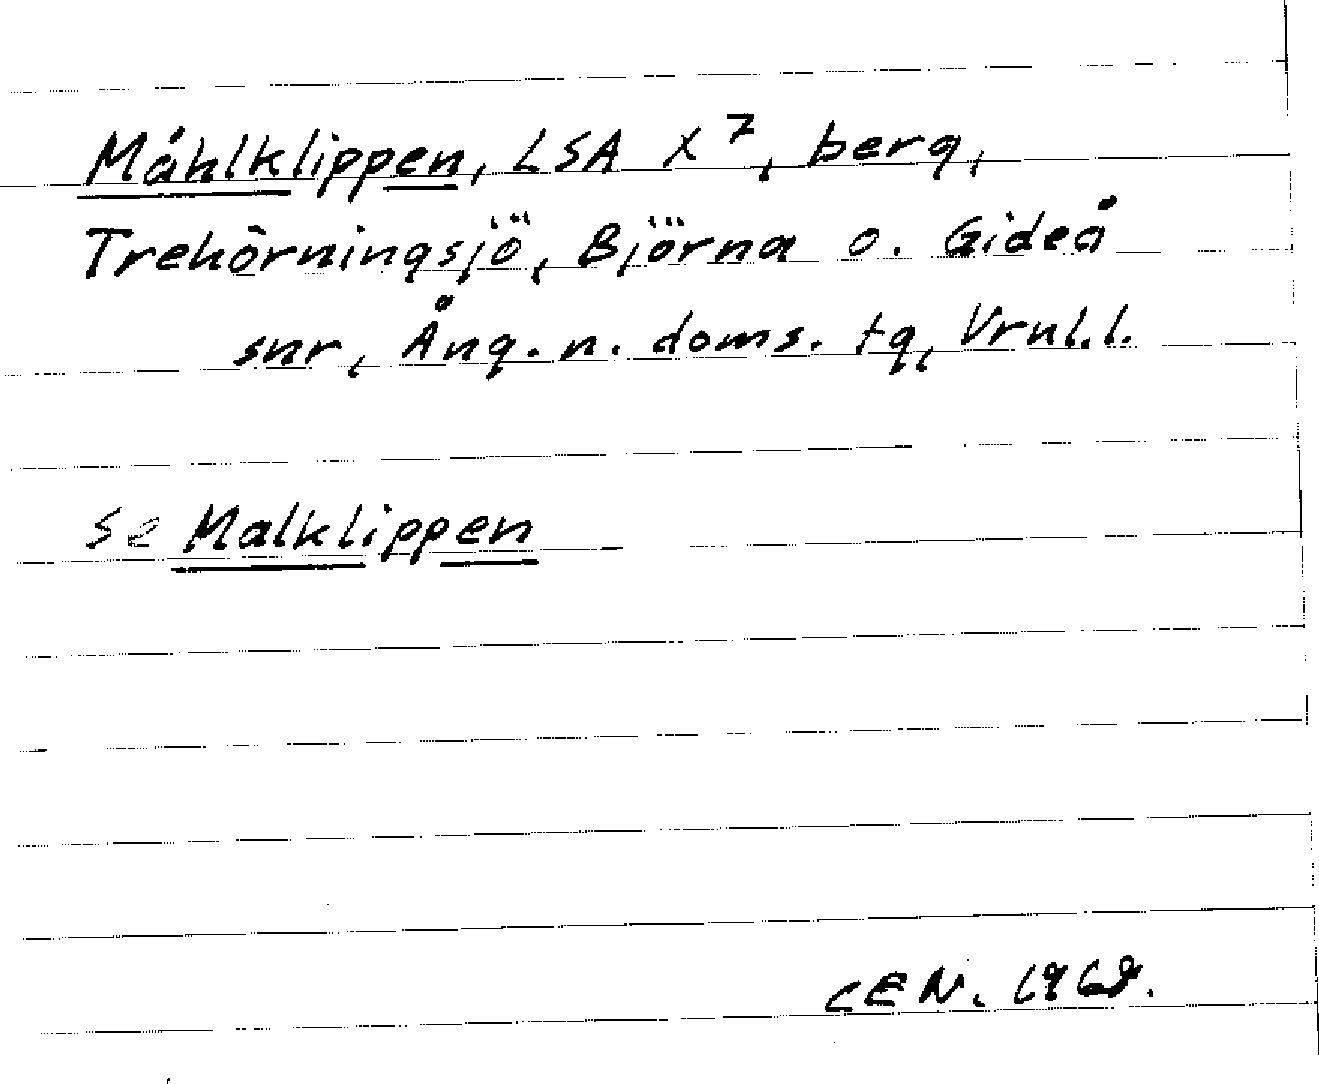 Måhlklippen, LSA X 7, berg,
Trehörningsjö, Björna o. Gideå
snr, Ång. n. doms. tg, Vrnl.l.
se Malklippen
CEN. 1968.